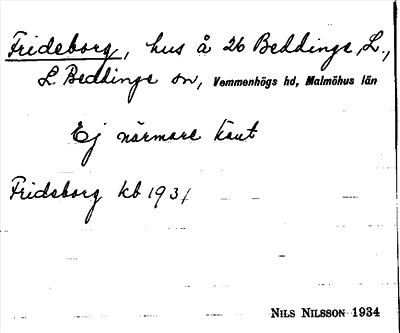 Frideborg, hus å 26 Beddinge, L.,
L. Beddinge sn, Vemmenhögs hd, Malmöhus län
Ej närmare känt
Fridsborg kb 1931
NILS NILSSON 1934